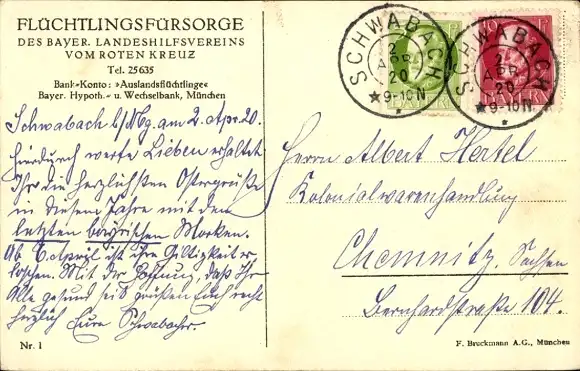 FLÜCHTLINGSFÜRSORGE
DES BAYER. LANDESHILFSVEREINS
VOM ROTEN KREUZ
Tel. 25635
Bank-Konto: »Auslandsflüchtlinge«
Bayer. Hypoth.- u. Wechselbank, München
Schwabach b/Nbg. am 2. Apr. 20.
Hierdurch werte Lieben erhaltet
Ihr die herzlichsten Ostergrüße
in diesem Jahre mit den
letzten bayrischen Marken.
Ab 6. April ist ihre Giltigkeit er-
loschen. Mit der Hoffnung, daß Ihr
Alle gesund seid grüßen Euch recht
herzlich Eure Schwabacher.
Nr. 1
SCHWABACH
2
APR
20
9-10 N
BAYERN
SCHWABACH
2
APR
20
9-10 N
Herrn Albert Hertel
Kolonialwarenhandlung
Chemnitz. Sachsen
Bernhardstraße 104.
F. Bruckmann A.G., München